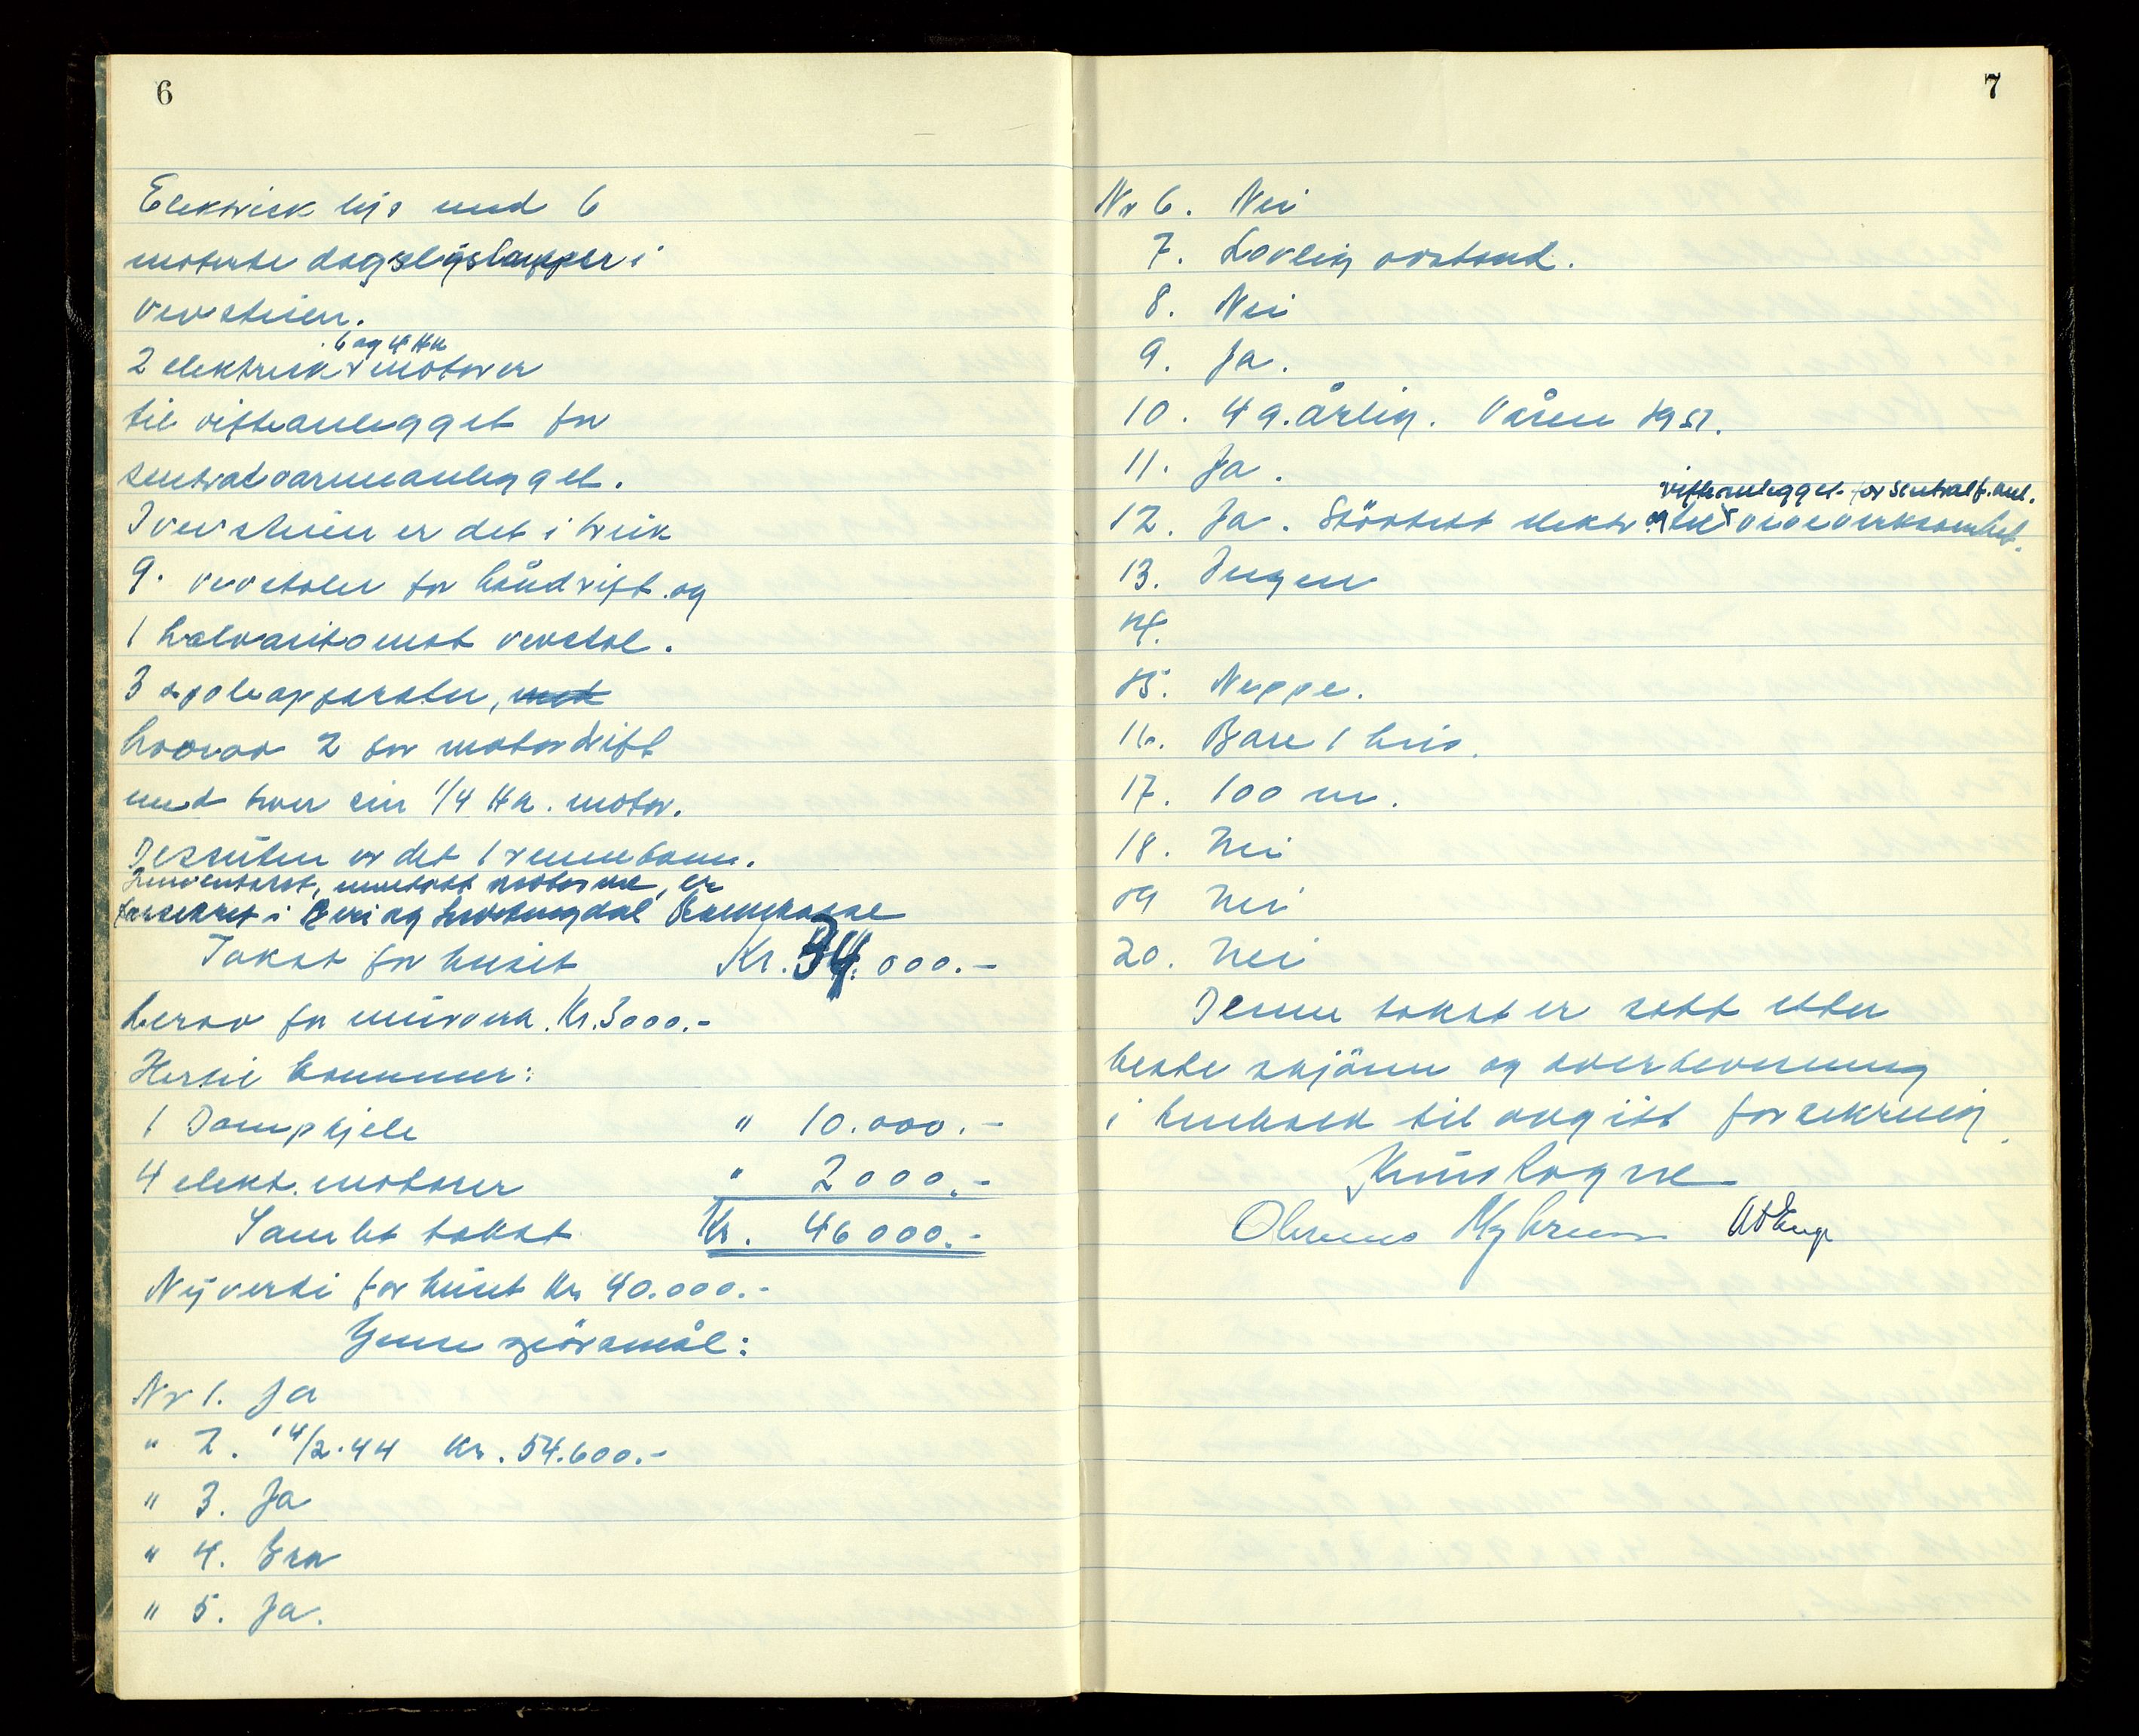 6
Elektrisk lys med 6
moderne dagslyslamper i
vevstuen.
6 og 4 HK
2 elektrisk v motorer
til vifteanlegget for
sentralvarmanlegget.
I vevstuen er det i bruk
9. vevstoler for hånddrift og
1 halvautomat vevstol.
3 spoleapparater, med
hvorav 2 for motordrift
med hver sin 1/4 Hk. motor.
Dessuten er det 1 rennebom.
Inventaret, unntatt motorene, er
forsikret i
Brannkasse
Takst for huset Kr. 34.000.-
herav for murverk. Kr. 3000.-
Hertil kommer:
1 Dampkjele " 10.000.-
4 elekt. motorer " 2000.-
Samlet takst Kr. 46000.-
Nyverdi for huset Kr 40.000.-
spörsmål:
Nr 1. Ja
" 2. 14/2.44 Kr. 54.600.-
" 3. Ja
" 4. Bra
" 5. Ja.
7
Nr 6. Nei
7. Lovlig avstand.
8. Nei
9. Ja.
10. 4 g. årlig. Våren 1951.
11. Ja.
vifteanlegget for sentralf. anl.
12. Ja. Störstedt elektr og til v veveverksomhet.
13. Ingen
14.
15. Neppe.
16. Bare 1 hus.
17. 100 m.
18. Nei
19 Nei
20. Nei
Denne takst er satt etter
beste skjönn og overbevisning
i henhold til avgitt forsikring.
Knut Rogne
Myhren